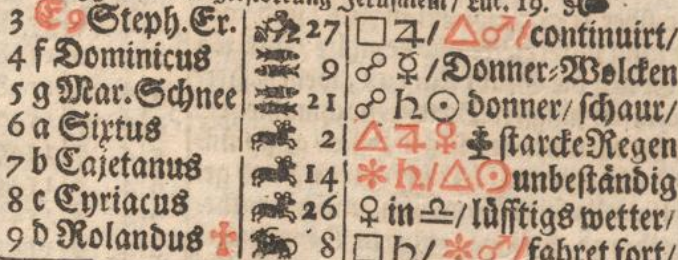 Zerstörung Jerusalem / Luc. 19.
3 E9 Steph. Er. 27 □ ♃ / △ ♂ / continuirt /
4 f Dominicus 9 ☍ ☿ / Donner=Wolcken
5 g Mar. Schnee 21 ☍ ♄ ☉ donner / schaur /
6 a Sixtus 2 △ ♃ ♀ starcke Regen
7 b Cajetanus 14 ✶ ♄ / △ ☉ unbeständig
8 c Cyriacus 26 ♀ in ♎ / lüfftigs wetter /
9 d Rolandus ✝ 8 □ ♄ / ✶ ♂ / fahret fort /